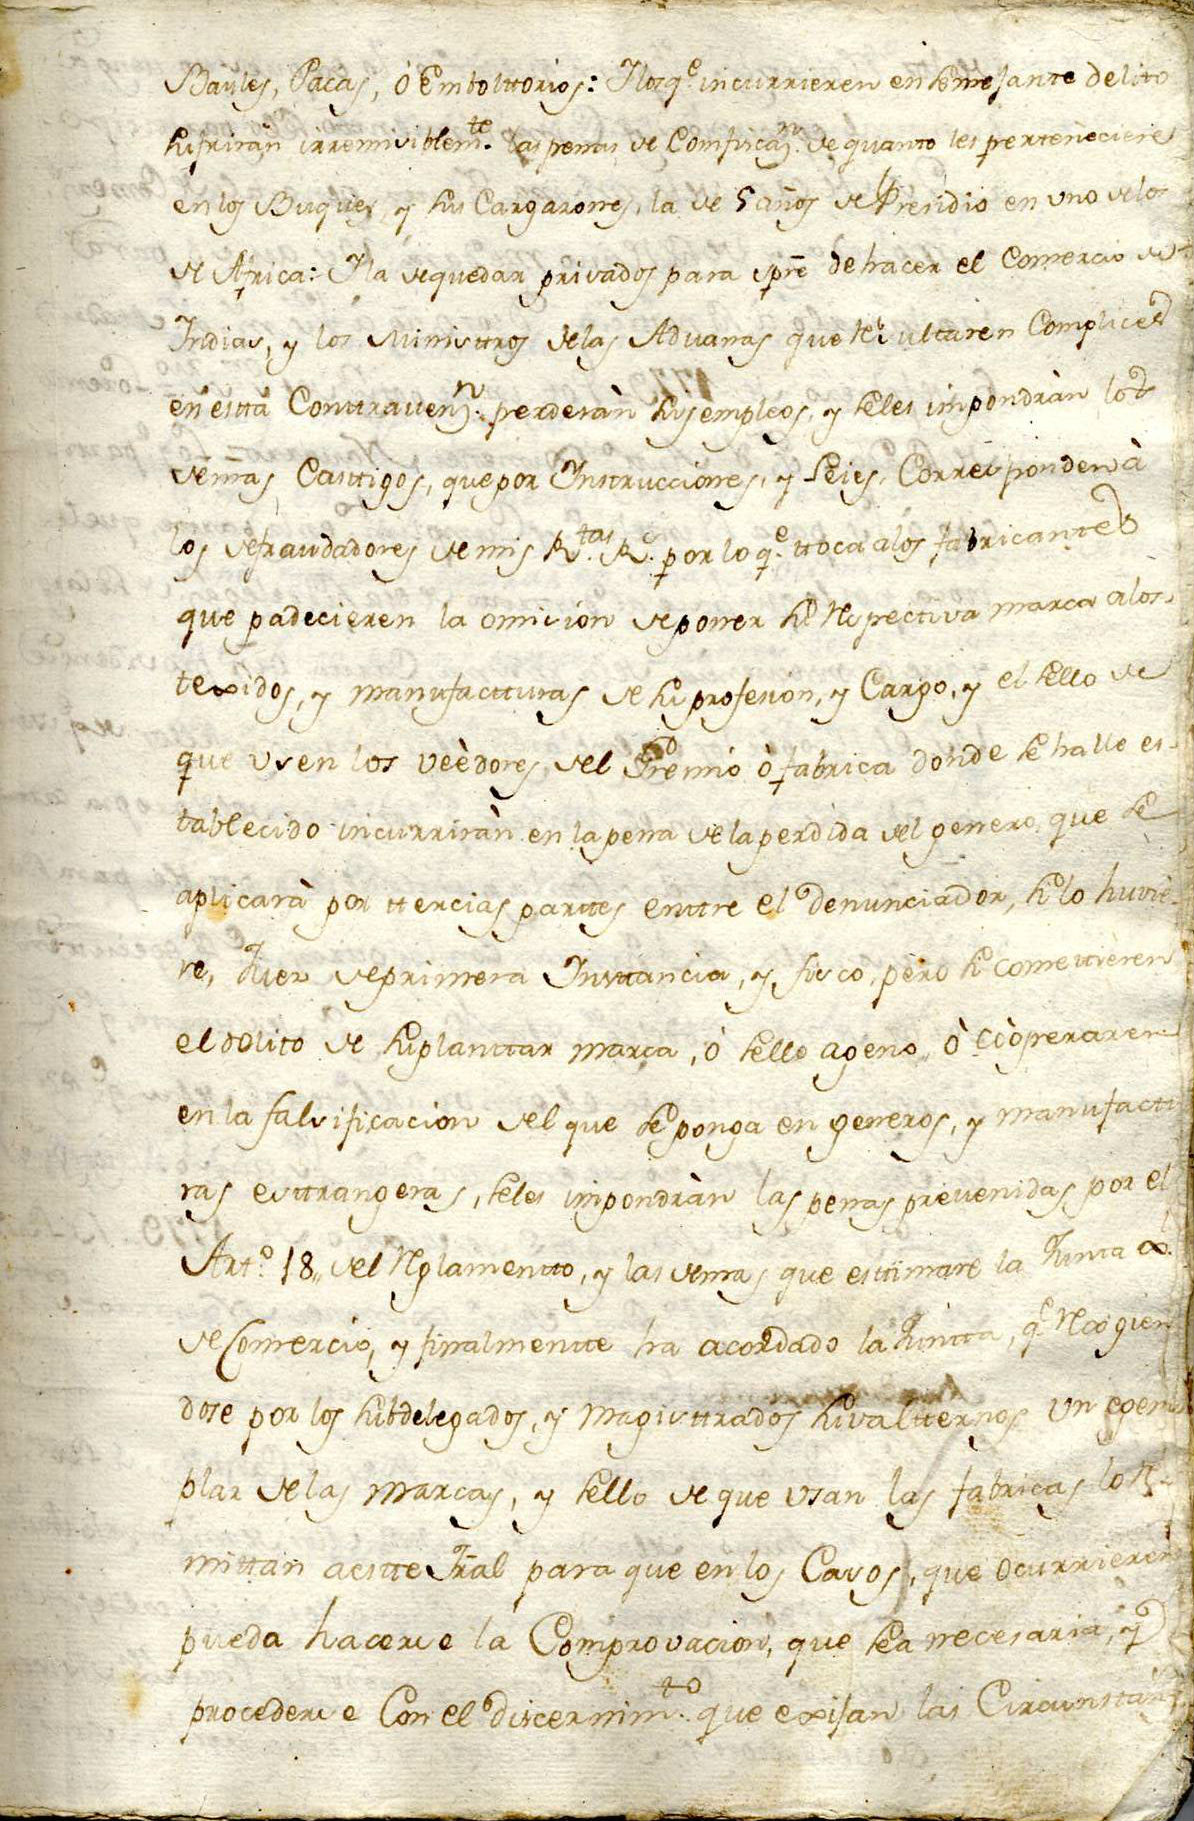 Baules, Pacas, ó Embolttorios: Y los q.e incurrieren en semejante delito
sufrirán irremisiblem.te las penas de Comfiscaz.n de quanto les perteneciere
en los Buques, y sus Cargazones, la de 5 años de Presidio en uno de los
de Africa: Y la de quedar privados para spre de hacer el Comercio de
Indias, y los Ministtros de las Aduanas que resultaren Complices
en estta Conttravenz.n perderàn sus empleos, y se les impondràn los
demas Casttigos, que por Instrucciones, y Leies, Corresponden à
los defraudadores de mis R.tas R.s por lo q.e ttoca a los fabricantes
que padecieren la omision de poner su respectiva marca a los
texidos, y manufactturas de su profesion, y Cargo, y el sello de
que usen los veèdores del Gremio ò fabrica donde se halle es-
tablecido incurriràn en la pena de la perdida del genero que se
aplicarà por ttercias parttes enttre el denunciador, si lo huvie-
re, Juez de primera Insttancia, y fisco, pero si comettieren
el delito de suplanttar marca, ò sello ageno, ò coòperaren
en la falsificacion del que se ponga en generos, y manufactu
ras esttrangeras, se les impondràn las penas prevenidas por el
Art.o 18,, del Reglamentto, y las demas que esttimare la Junta Gl.
de Comercio, y finalmentte ha acordado la Juntta, q.e recogien
dose por los subdelegados, y Magisttrados subaltternos un egem
plar de las marcas, y sello de que usan las fabricas lo re-
mittan a estte Tral para que en los Casos, que ocurrieren
pueda hacerse la Comprovacion, que sea necesaria, y
procederse Con el discernim.to que exijan las Circunstan